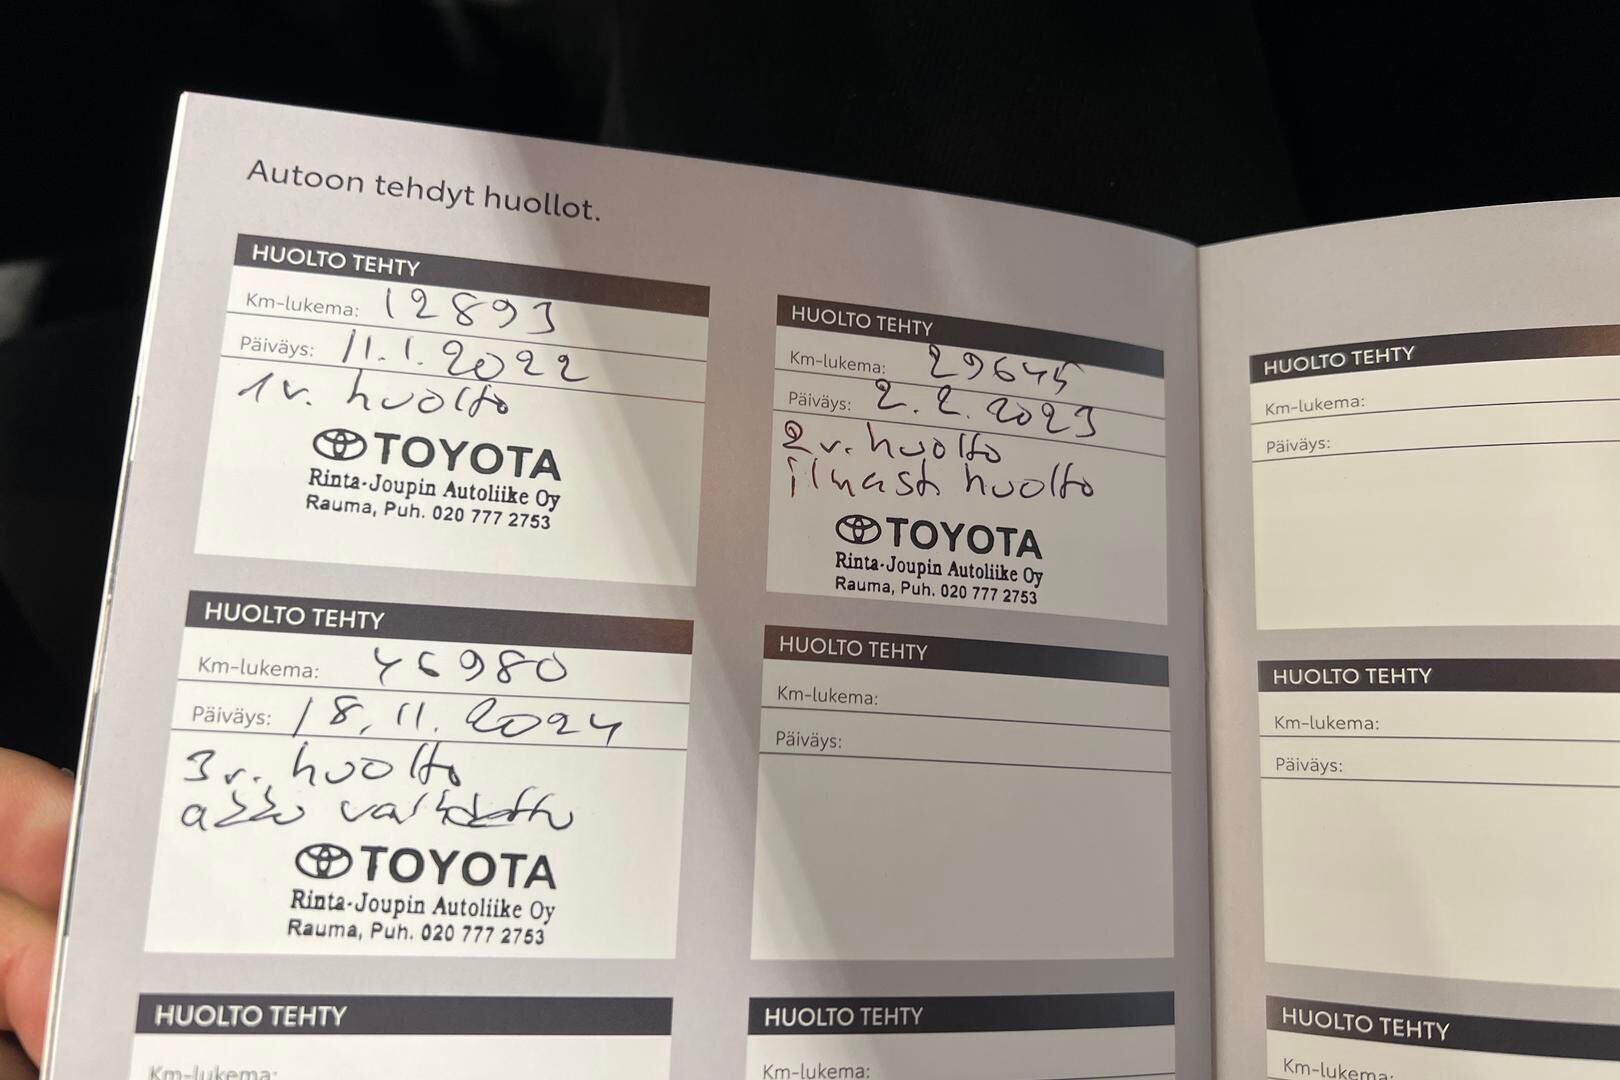 Autoon tehdyt huollot.
HUOLTO TEHTY
Km-lukema: 12893
Päiväys: 11.1.2022
1 v. huolto
TOYOTA
Rinta-Joupin Autoliike Oy
Rauma, Puh. 020 777 2753
HUOLTO TEHTY
Km-lukema: 29645
Päiväys: 2.2.2023
2 v. huolto
ilmast huolto
TOYOTA
Rinta-Joupin Autoliike Oy
Rauma, Puh. 020 777 2753
HUOLTO TEHTY
Km-lukema: 46980
Päiväys: 18.11.2024
3 v. huolto
TOYOTA
Rinta-Joupin Autoliike Oy
Rauma, Puh. 020 777 2753
HUOLTO TEHTY
Km-lukema:
Päiväys:
HUOLTO TEHTY
Km-lukema:
HUOLTO TEHTY
Km-lukema:
HUOLTO TEHTY
Km-lukema:
Päiväys:
HUOLTO TEHTY
Km-lukema:
Päiväys:
HUOLTO TEHTY
Km-lukema: